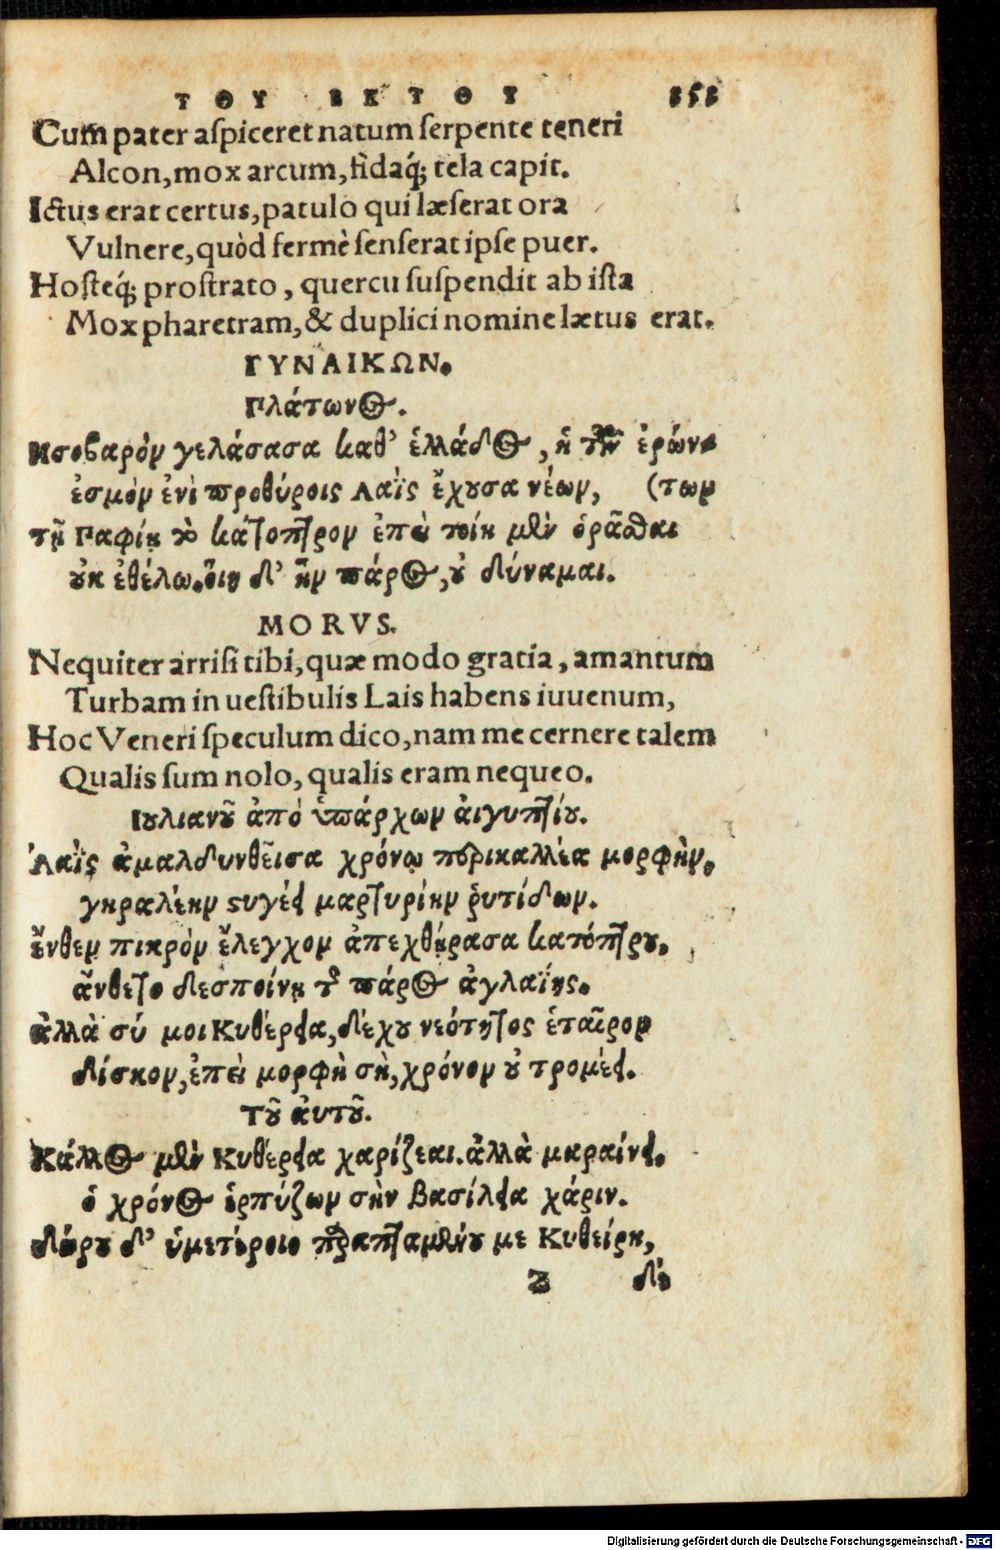 ΤΟΥ ΕΚΤΟΥ 353
Cum pater aspiceret natum serpente teneri
Alcon, mox arcum, fidaq́; tela capit.
Ictus erat certus, patulo qui læserat ora
Vulnere, quòd fermè senserat ipse puer.
Hosteq́; prostrato, quercu suspendit ab ista
Mox pharetram, & duplici nomine lætus erat.
ΓΥΝΑΙΚΩΝ.
Πλάτωνος.
Η σοβαρὸν γελάσασα καθ' ἑλλάδος, ἡ τὸν ἐρώνε
ἐσμὸν ἐνὶ προθύροις Λαῒς ἔχουσα νέων, (των
τῇ Παφίῃ τὸ κάτοπτρον ἐπεὶ τοίη μὲν ὁρᾶσθαι
οὐκ ἐθέλω. οἵη δ' ἦν πάρος, οὐ δύναμαι.
MORVS.
Nequiter arrisi tibi, quæ modo gratia, amantum
Turbam in uestibulis Lais habens iuuenum,
Hoc Veneri speculum dico, nam me cernere talem
Qualis sum nolo, qualis eram nequeo.
Ιουλιανοῦ ἀπὸ ὑπάρχων αἰγυπτίου.
Λαῒς ἀμαλδυνθεῖσα χρόνῳ περικαλλέα μορφὴν,
γηραλέην στυγέει μαρτυρίην ῥυτίδων.
ἔνθεν πικρὸν ἔλεγχον ἀπεχθήρασα κατόπτρου,
ἄνθετο δεσποίνῃ τῆς πάρος ἀγλαΐης.
ἀλλὰ σύ μοι Κυθέρεια, δέχου νεότητος ἑταῖρον
δίσκον, ἐπεὶ μορφὴ σὴ, χρόνον οὐ τρομέει.
Τοῦ αὐτοῦ.
Κάλλος μὲν Κυθέρεια χαρίζεαι. ἀλλὰ μαραίνει.
ὁ χρόνος ἑρπύζων σὴν βασίλεια χάριν.
δώρου δ' ὑμετέροιο παραπταμένου με Κυθείρη,
Z δέ
Digitalisierung gefördert durch die Deutsche Forschungsgemeinschaft - DFG